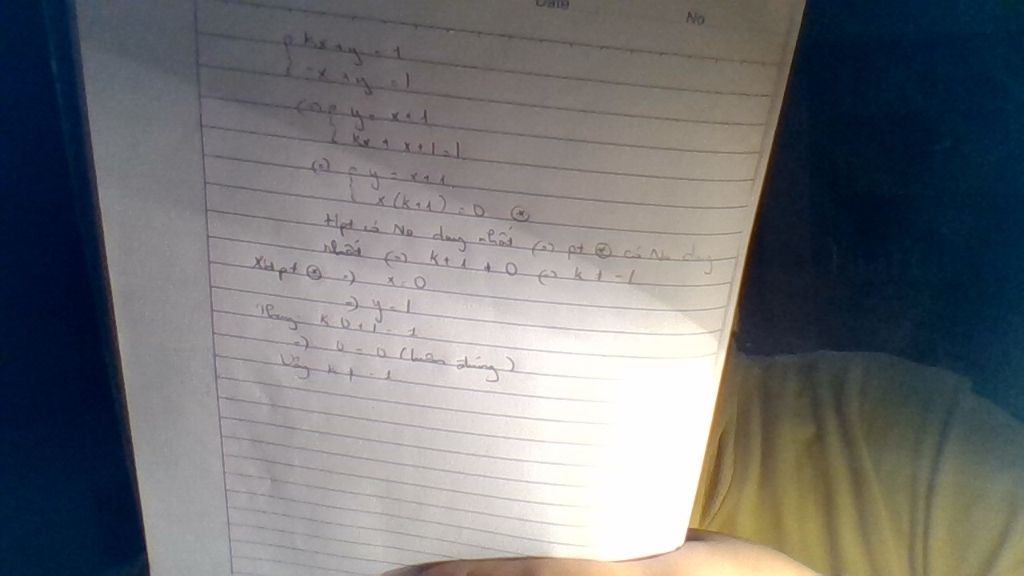 Date No
{ kx + y = 1
{ -x + y = 1
(=) { y = x + 1
{ kx + x + 1 = 1
(=) { y = x + 1
{ x(k+1) = 0 (*)
Hpt có No duy nhất (=) pt (*) có No duy
nhất (=) k + 1 ≠ 0 (=) k ≠ -1
Xét pt (*) =) x = 0
=) y = 1
Thay k.0 + 1 = 1
=) 0 = 0 (luôn đúng)
Vậy k ≠ -1